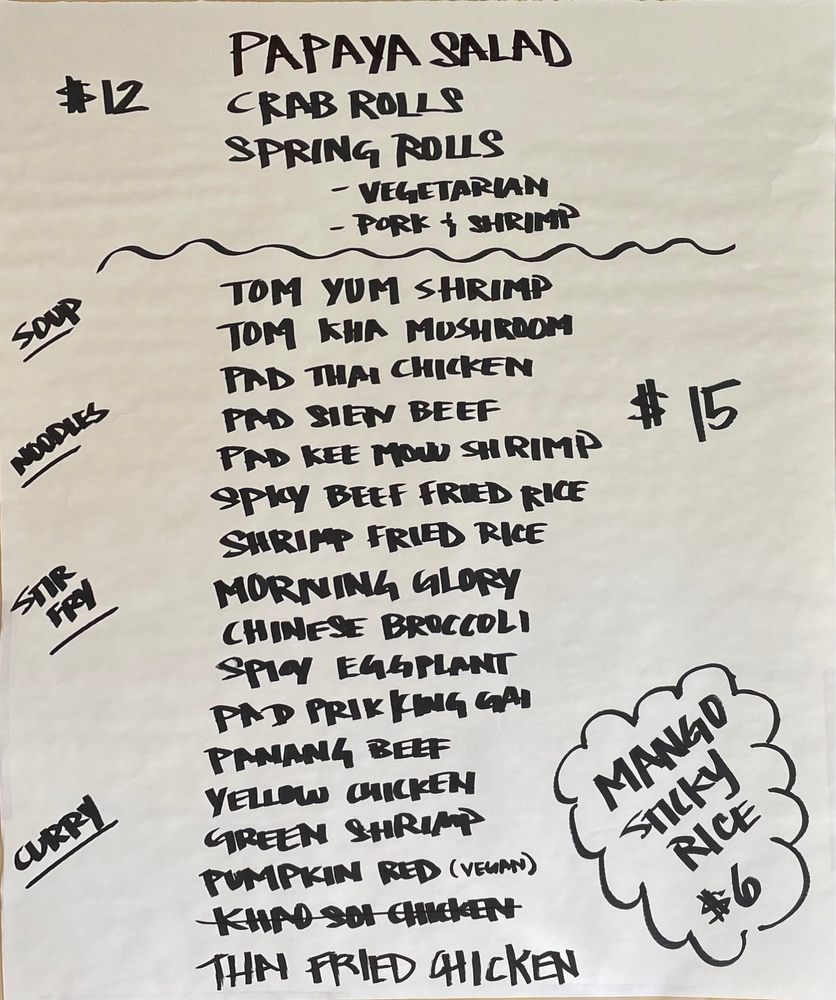 PAPAYA SALAD
$12
CRAB ROLLS
SPRING ROLLS
- VEGETARIAN
- PORK & SHRIMP
SOUP
TOM YUM SHRIMP
TOM KHA MUSHROOM
PAD THAI CHICKEN
$15
NOODLES
PAD SIEW BEEF
PAD KEE MOW SHRIMP
SPICY BEEF FRIED RICE
SHRIMP FRIED RICE
STIR
FRY
MORNING GLORY
CHINESE BROCCOLI
SPICY EGGPLANT
PAD PRIK KING GAI
CURRY
PANANG BEEF
YELLOW CHICKEN
GREEN SHRIMP
PUMPKIN RED (VEGAN)
KHAO SOI CHICKEN
THAI FRIED CHICKEN
MANGO
STICKY
RICE
$6